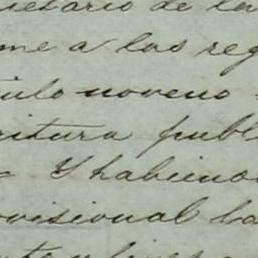 ietario de la
me a las reg
culo noveno
ritura publ
Y habiendo
ovisional la